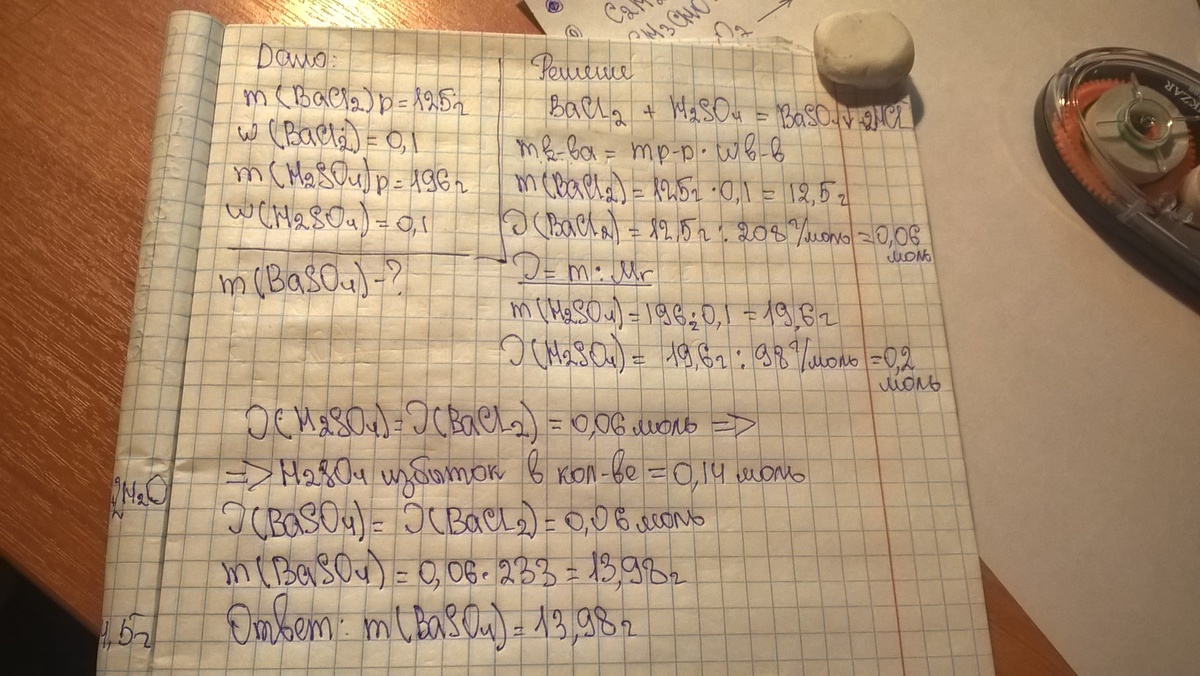 C2H2
CH3CHO
O2
Дано:
m(BaCl2)р=125г
w(BaCl2)=0,1
m(H2SO4)р=196г
w(H2SO4)=0,1
m(BaSO4)-?
Решение
BaCl2 + H2SO4 = BaSO4↓+2HCl
mв-ва = mр-р·wв-в
m(BaCl2)=125г·0,1=12,5г
ν(BaCl2)=12,5г:208г/моль=0,06
моль
ν=m:Mr
m(H2SO4)=196·0,1=19,6г
ν(H2SO4)= 19,6г:98г/моль=0,2
моль
ν(H2SO4)=ν(BaCl2)=0,06моль =>
=> H2SO4 избыток в кол-ве=0,14 моль
ν(BaSO4)=ν(BaCl2)=0,06моль
m(BaSO4)=0,06·233=13,98г
Ответ: m(BaSO4)=13,98г
2H2O
,5г